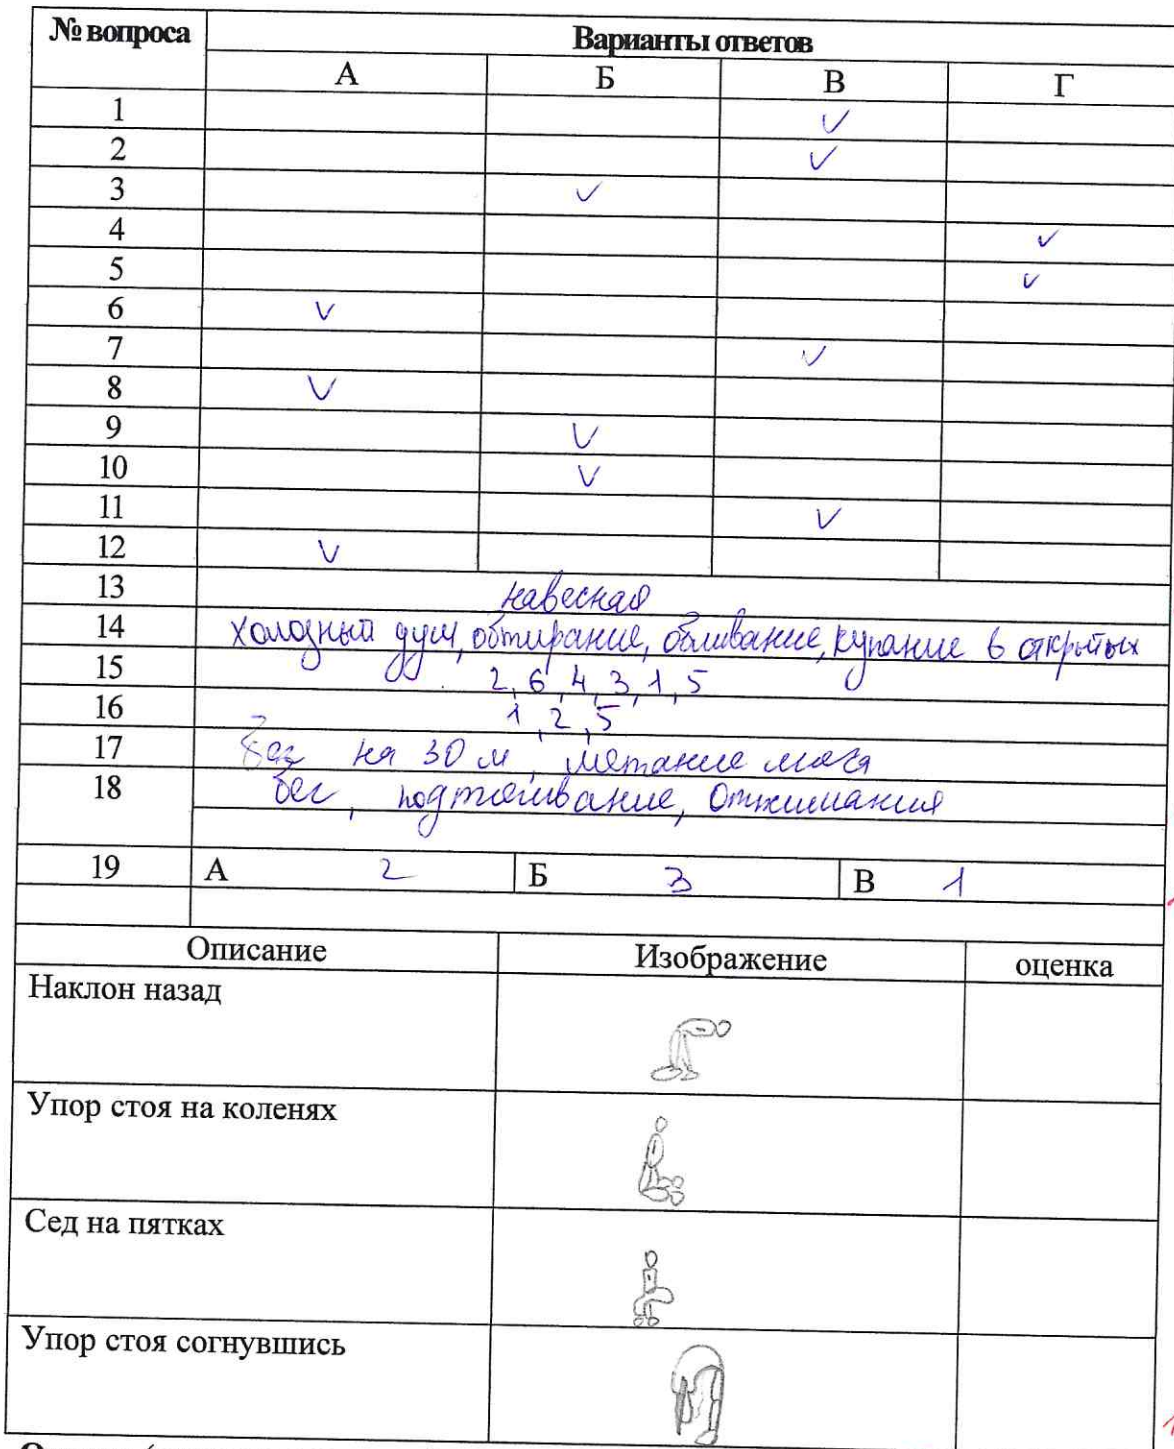 № вопроса Варианты ответов
А Б В Г
1 ✓
2 ✓
3 ✓
4 ✓
5 ✓
6 ✓
7 ✓
8 ✓
9 ✓
10 ✓
11 ✓
12 ✓
13 навесная
14 холодный душ, обтирание, обливание, купание в открытых
15 2, 6, 4, 3, 1, 5
16 1, 2, 5
17 на 30 м, метание мяча
18 бег, подтягивание, отжимания
19 А 2 Б 3 В 1
Описание Изображение оценка
Наклон назад
Упор стоя на коленях
Сед на пятках
Упор стоя согнувшись